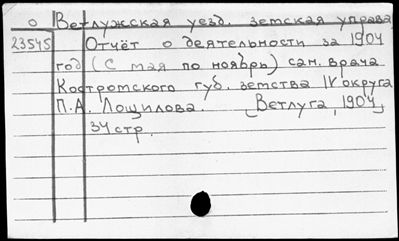 о Ветлужская уезд. земская управа
23545 Отчёт о деятельности за 1904
год (с мая по ноябрь) сан. врача
Костромского губ. земства IV округа
П.А. Лощилова. Ветлуга, 1904.
34 стр.